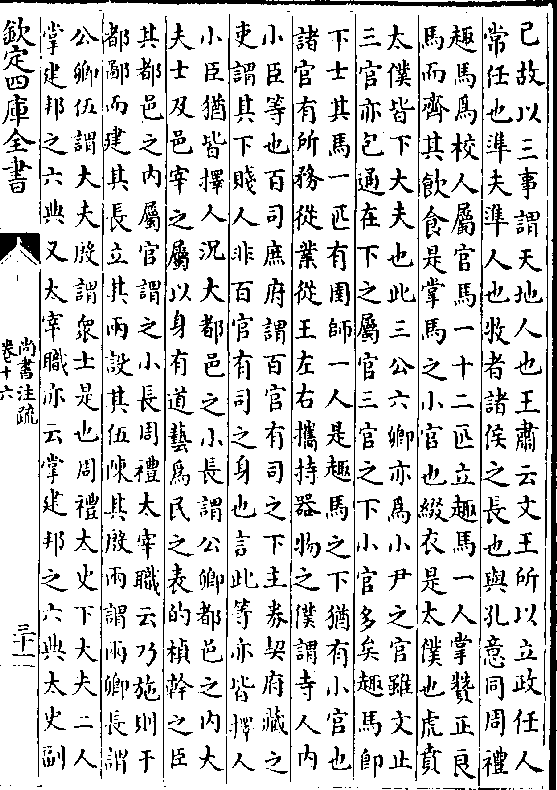 已故以三事謂天地人也王肅云文王所以立政任人
常任也準夫準人也牧者諸侯之長也與孔意同周禮
趣馬爲校人屬官馬一十二匹立趣馬一人掌贊正良
馬而齊其飲食是掌馬之小官也綴衣是太僕也虎賁
太僕皆下大夫也此三公六卿亦爲小尹之官雖文止
三官亦包通在下之屬官三官之下小官多矣趣馬即
下士其馬一匹有圉師一人是趣馬之下猶有小官也
諸官有所務從業從王左右攜持器物之僕謂寺人内
小臣等也百司庶府謂百官有司之下主券契府藏之
吏謂其下賤人非百官有司之身也言此等亦皆擇人
小臣猶皆擇人況大都邑之小長謂公卿都邑之内大
夫士及邑宰之屬以身有道藝爲民之表的楨幹之臣
其都邑之内屬官謂之小長周禮太宰職云乃施則于
都鄙而建其長立其兩設其伍陳其殷兩謂兩卿長謂
公卿伍謂大夫殷謂衆士是也周禮太史下大夫二人
掌建邦之六典又太宰職亦云掌建邦之六典太史副
欽定四庫全書
尚書注疏
卷十六
三十一